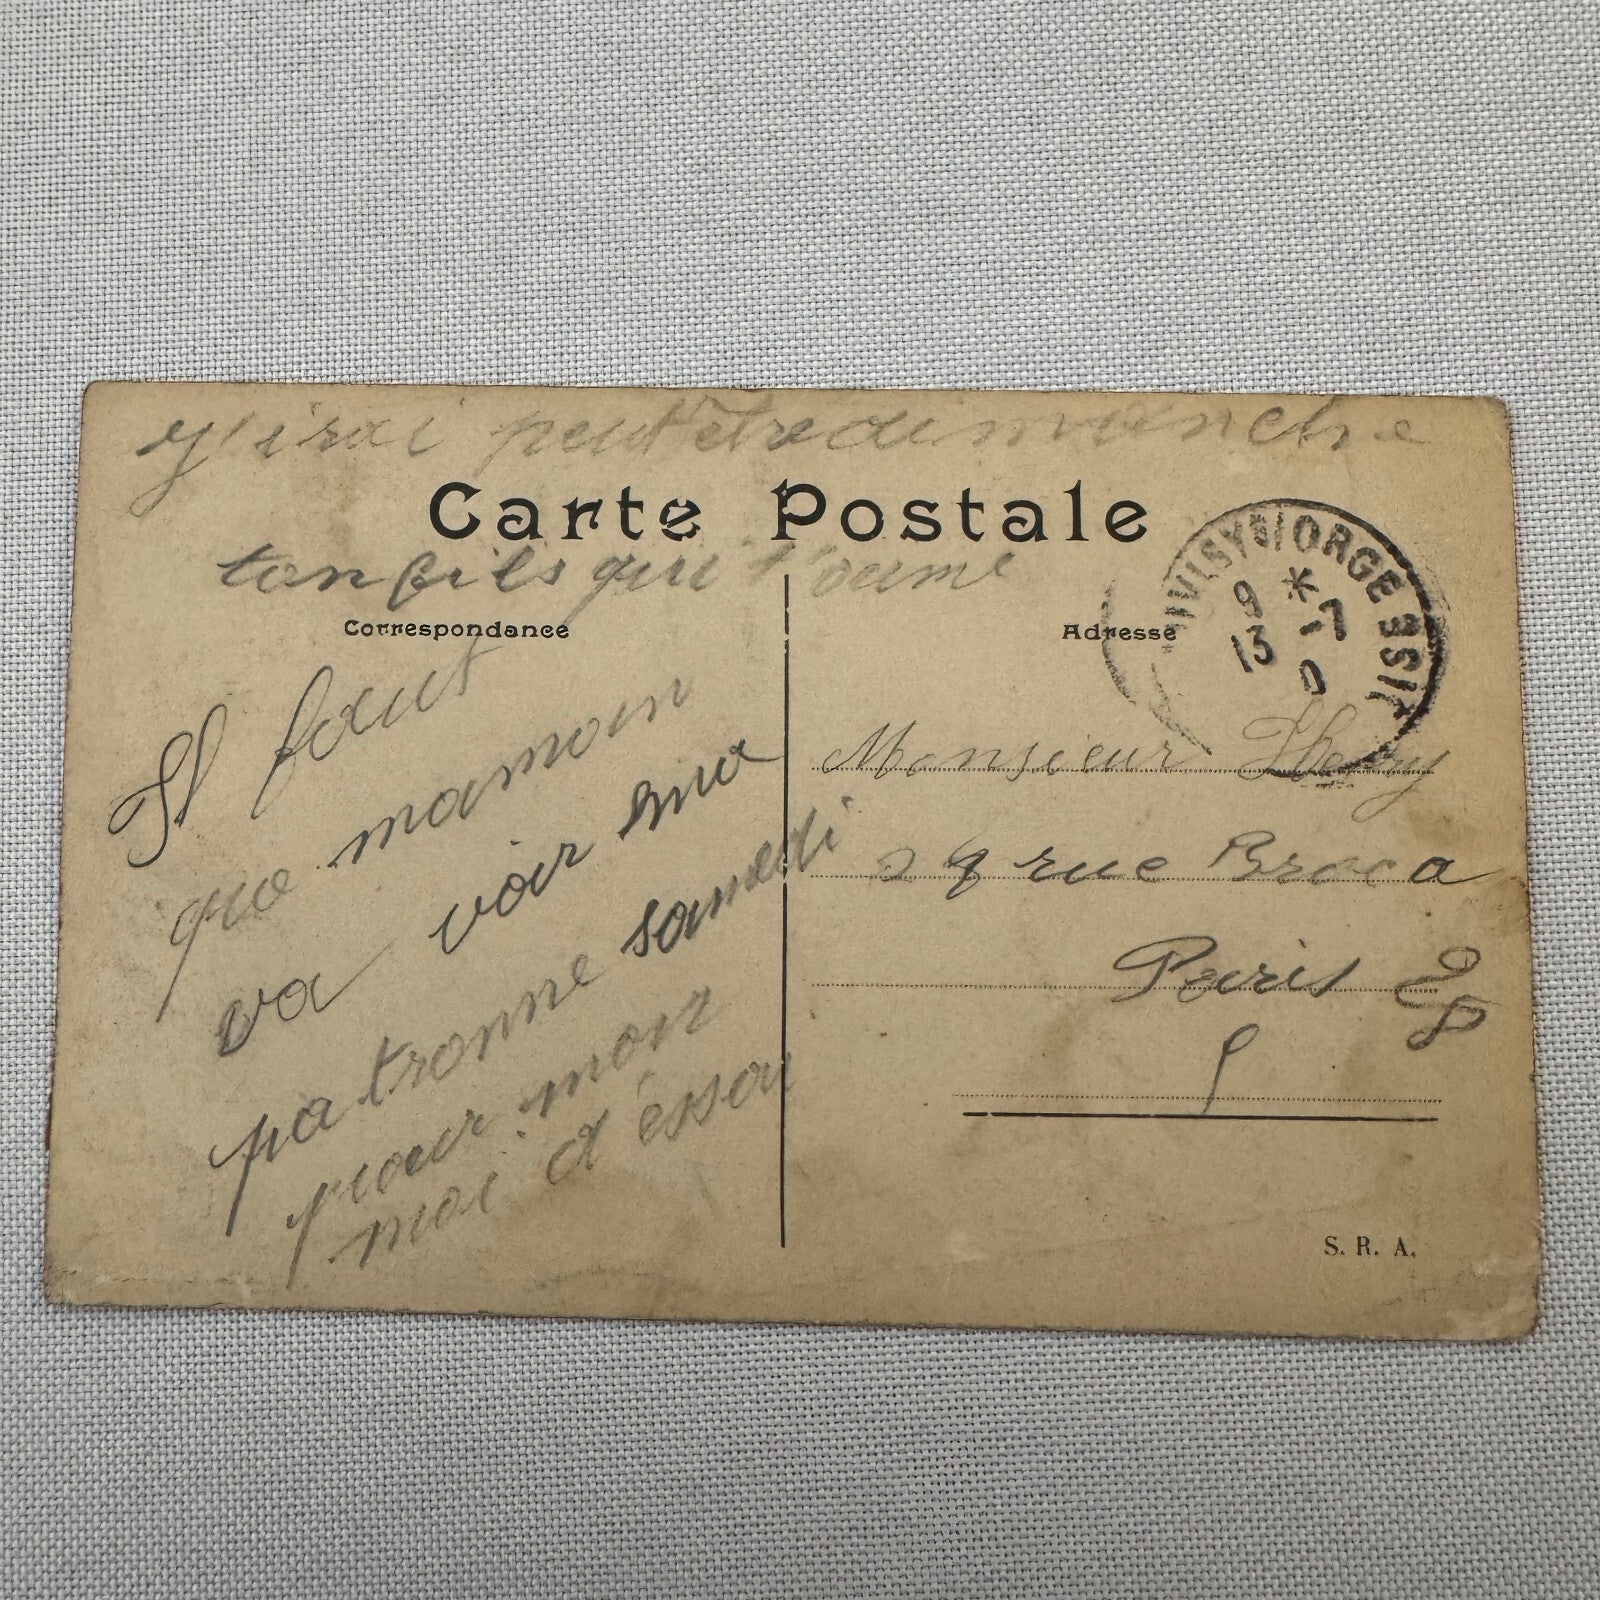 y'irai peut être dimanche
Carte Postale
ton fils qui t'aime
Correspondance
Il faut
que maman
va voir ma
patronne samedi
pour mon
moi d'éssai
Adresse
ORGE
9 * -7
13 0
Monsieur Thery
29 rue Broca
Paris
S. R. A.